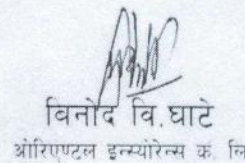 विनोद वि.घाटे
ओरिएण्टल इन्स्योरेन्स क. लि